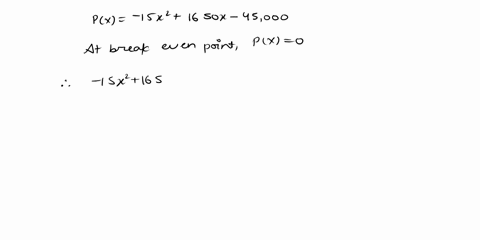 P(x) = -15x² + 1650x - 45,000
At break even point, P(x) = 0
∴ -15x² + 165